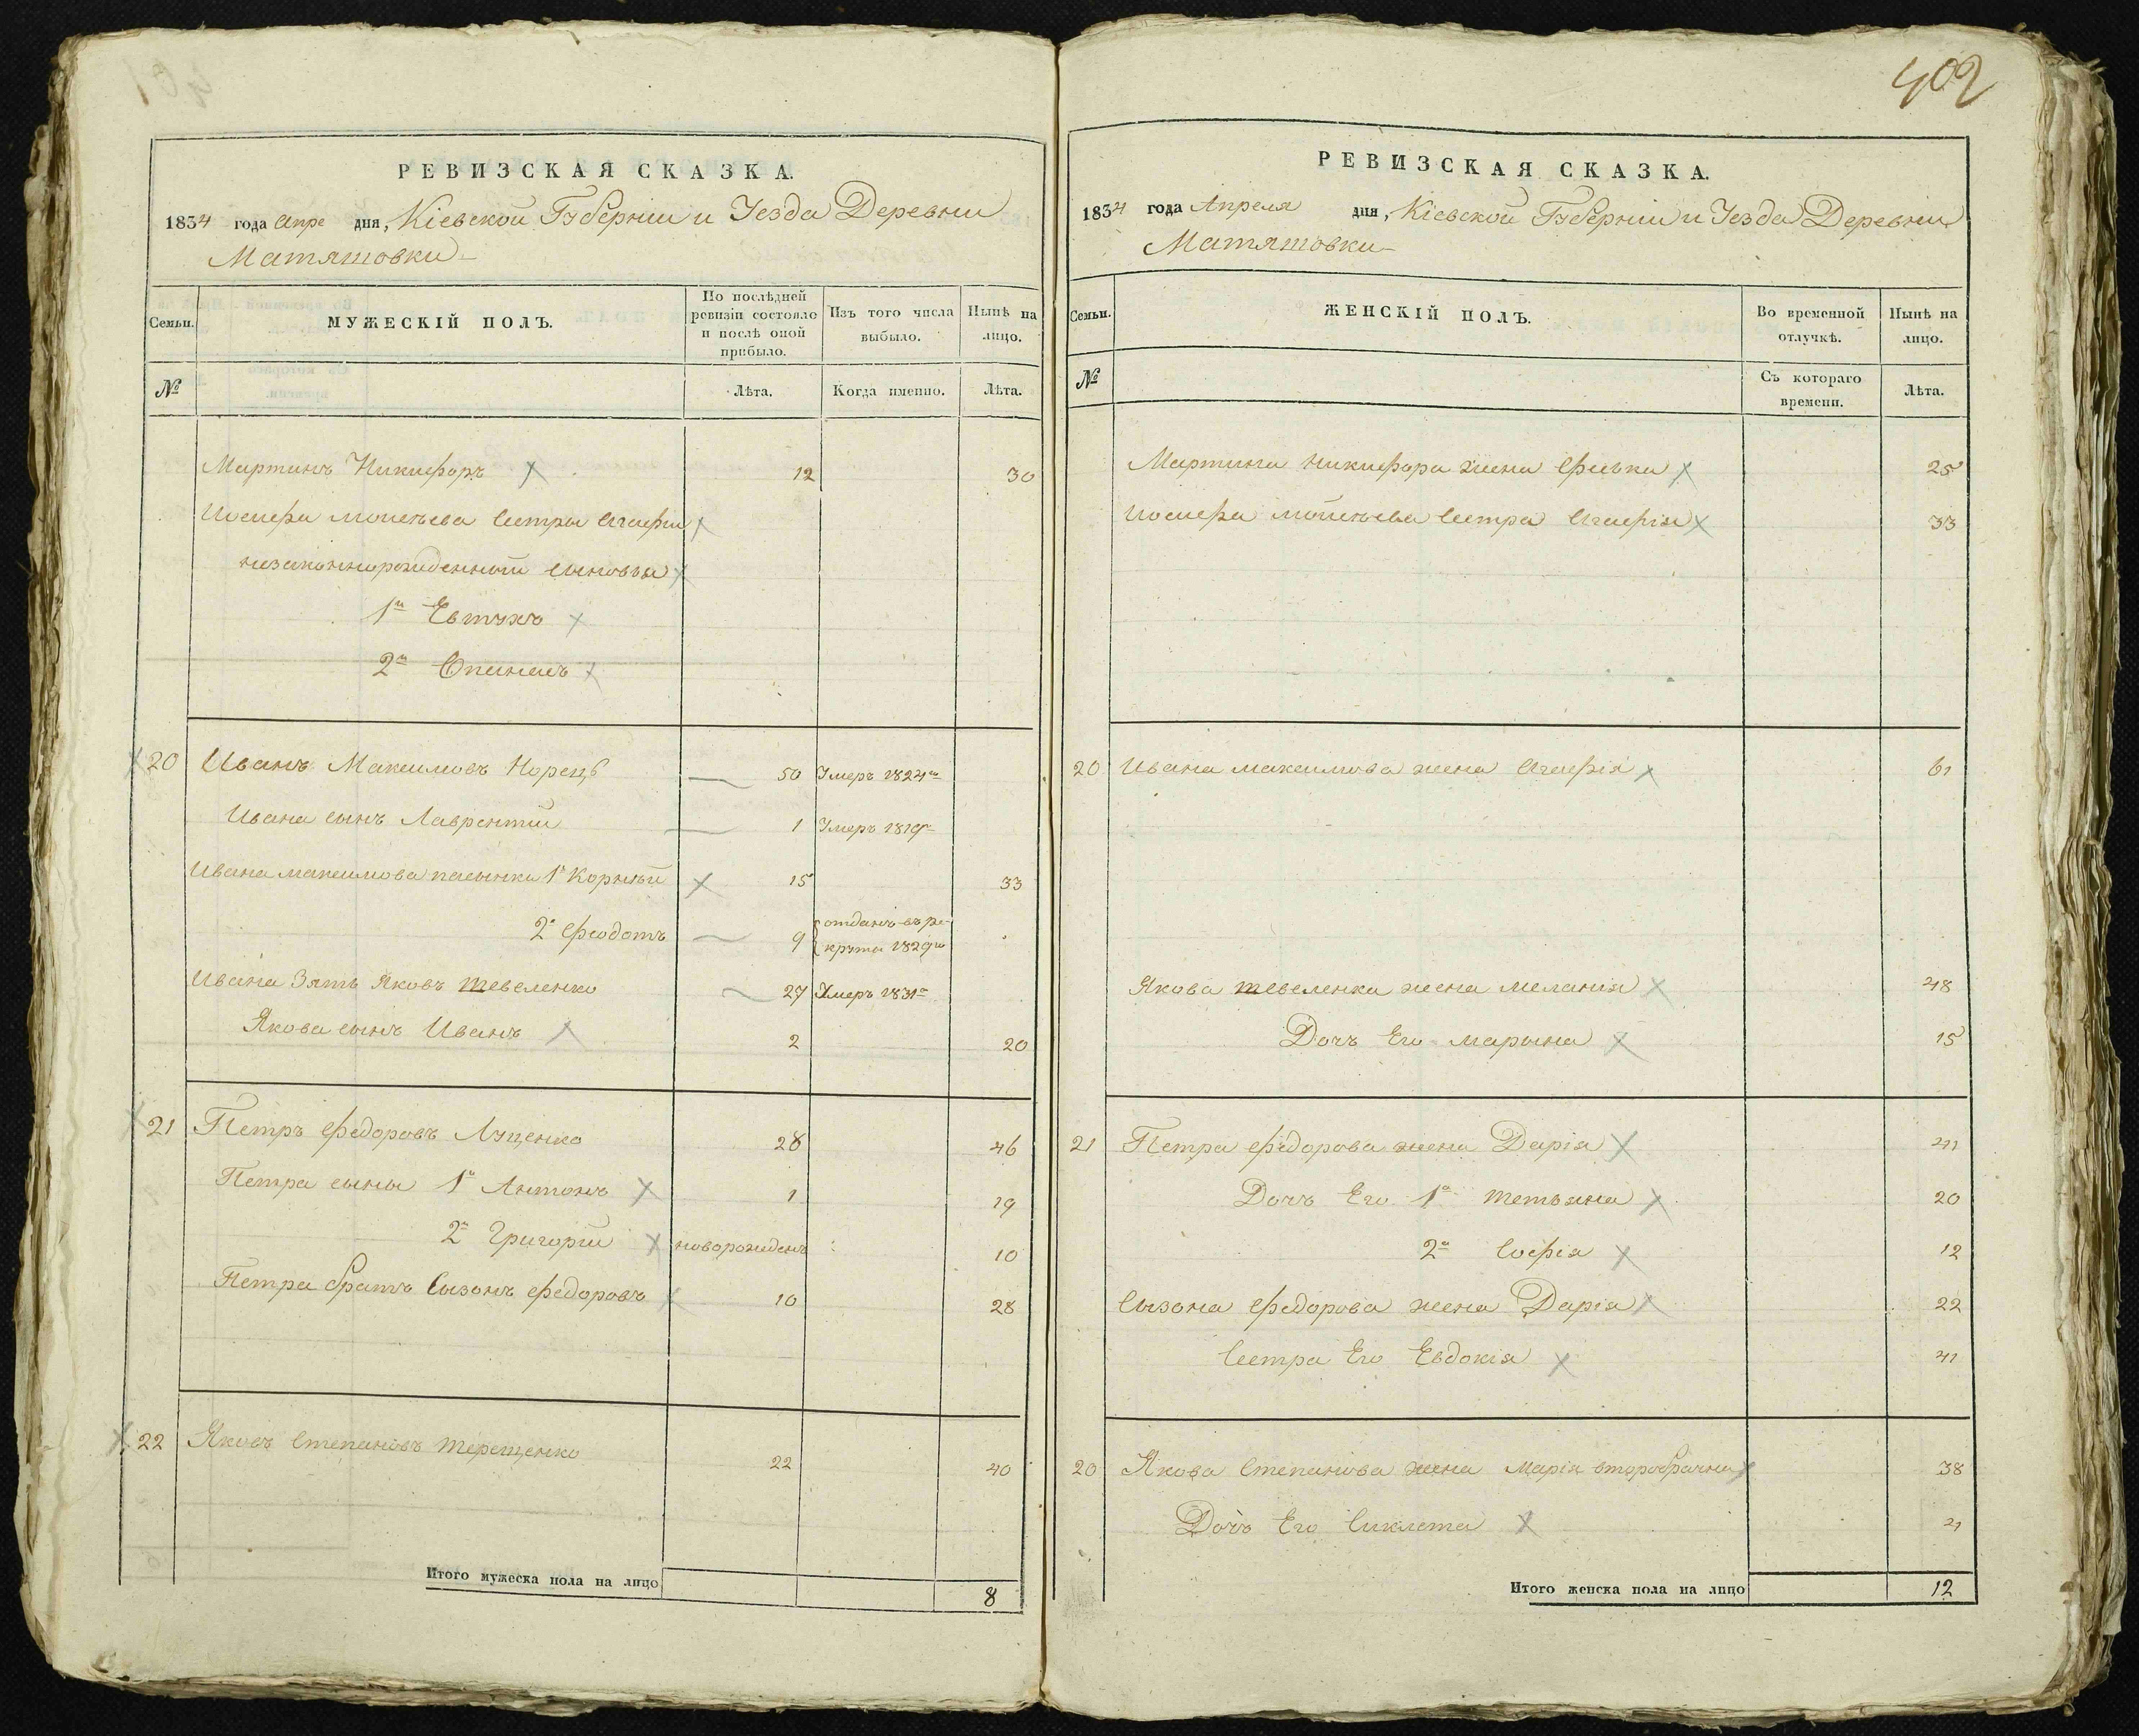 402
РЕВИЗСКАЯ СКАЗКА.
1834 года Апре дня, Кіевской Губерніи и Уезда Деревни
Матяшовки
Семьи.
МУЖЕСКІЙ ПОЛЪ.
По послѣдней ревизіи состояло и послѣ оной прибыло.
Изъ того числа выбыло.
Нынѣ на лицо.
№
Лѣта.
Когда именно.
Лѣта.
Мартинъ Никифоръ 12 30
Иосифа Моисеева сестры Агафіи
незаконнорожденныи сыновья
1й Евтухъ
2й Опанасъ
20 Иванъ Максимовъ Норецъ 50 Умеръ 1824го
Ивана сынъ Лаврентій 1 Умеръ 1819го
Ивана Максимова пасынки 1й Корнѣй 15 33
2й Феодотъ 9 отданъ въ ре-
круты 1829го
Ивана Зять Яковъ Шевеленко 27 Умеръ 1831го
Якова сынъ Иванъ 2 20
21 Петръ Федоровъ Луценко 28 46
Петра сыны 1й Антонъ 1 19
2й Григорій новорожденъ 10
Петра братъ Сызонъ Федоровъ 10 28
22 Яковъ Степановъ Терещенко 22 40
Итого мужеска пола на лицо 8
РЕВИЗСКАЯ СКАЗКА.
1834 года Апреля дня, Кіевской Губерніи и Уезда Деревни
Матяшовки
Семьи.
ЖЕНСКІЙ ПОЛЪ.
Во временной отлучкѣ.
Нынѣ на лицо.
№
Съ котораго времени.
Лѣта.
Мартина Никифора жена Фиѣвка 25
Иосифа Моисеева сестра Агафія 33
20 Ивана Максимова жена Агафія 61
Якова Шевеленка жена Меланія 48
Дочъ Его Марына 15
21 Петра Федорова жена Дарія 41
Дочъ Его 1я Тетьяна 20
2я Софія 12
Сызона Федорова жена Дарія 22
Сестра Его Евдокія 41
20 Якова Степанова жена Марія второбрачна 38
Дочъ Его Сиклета
Итого женска пола на лицо 12